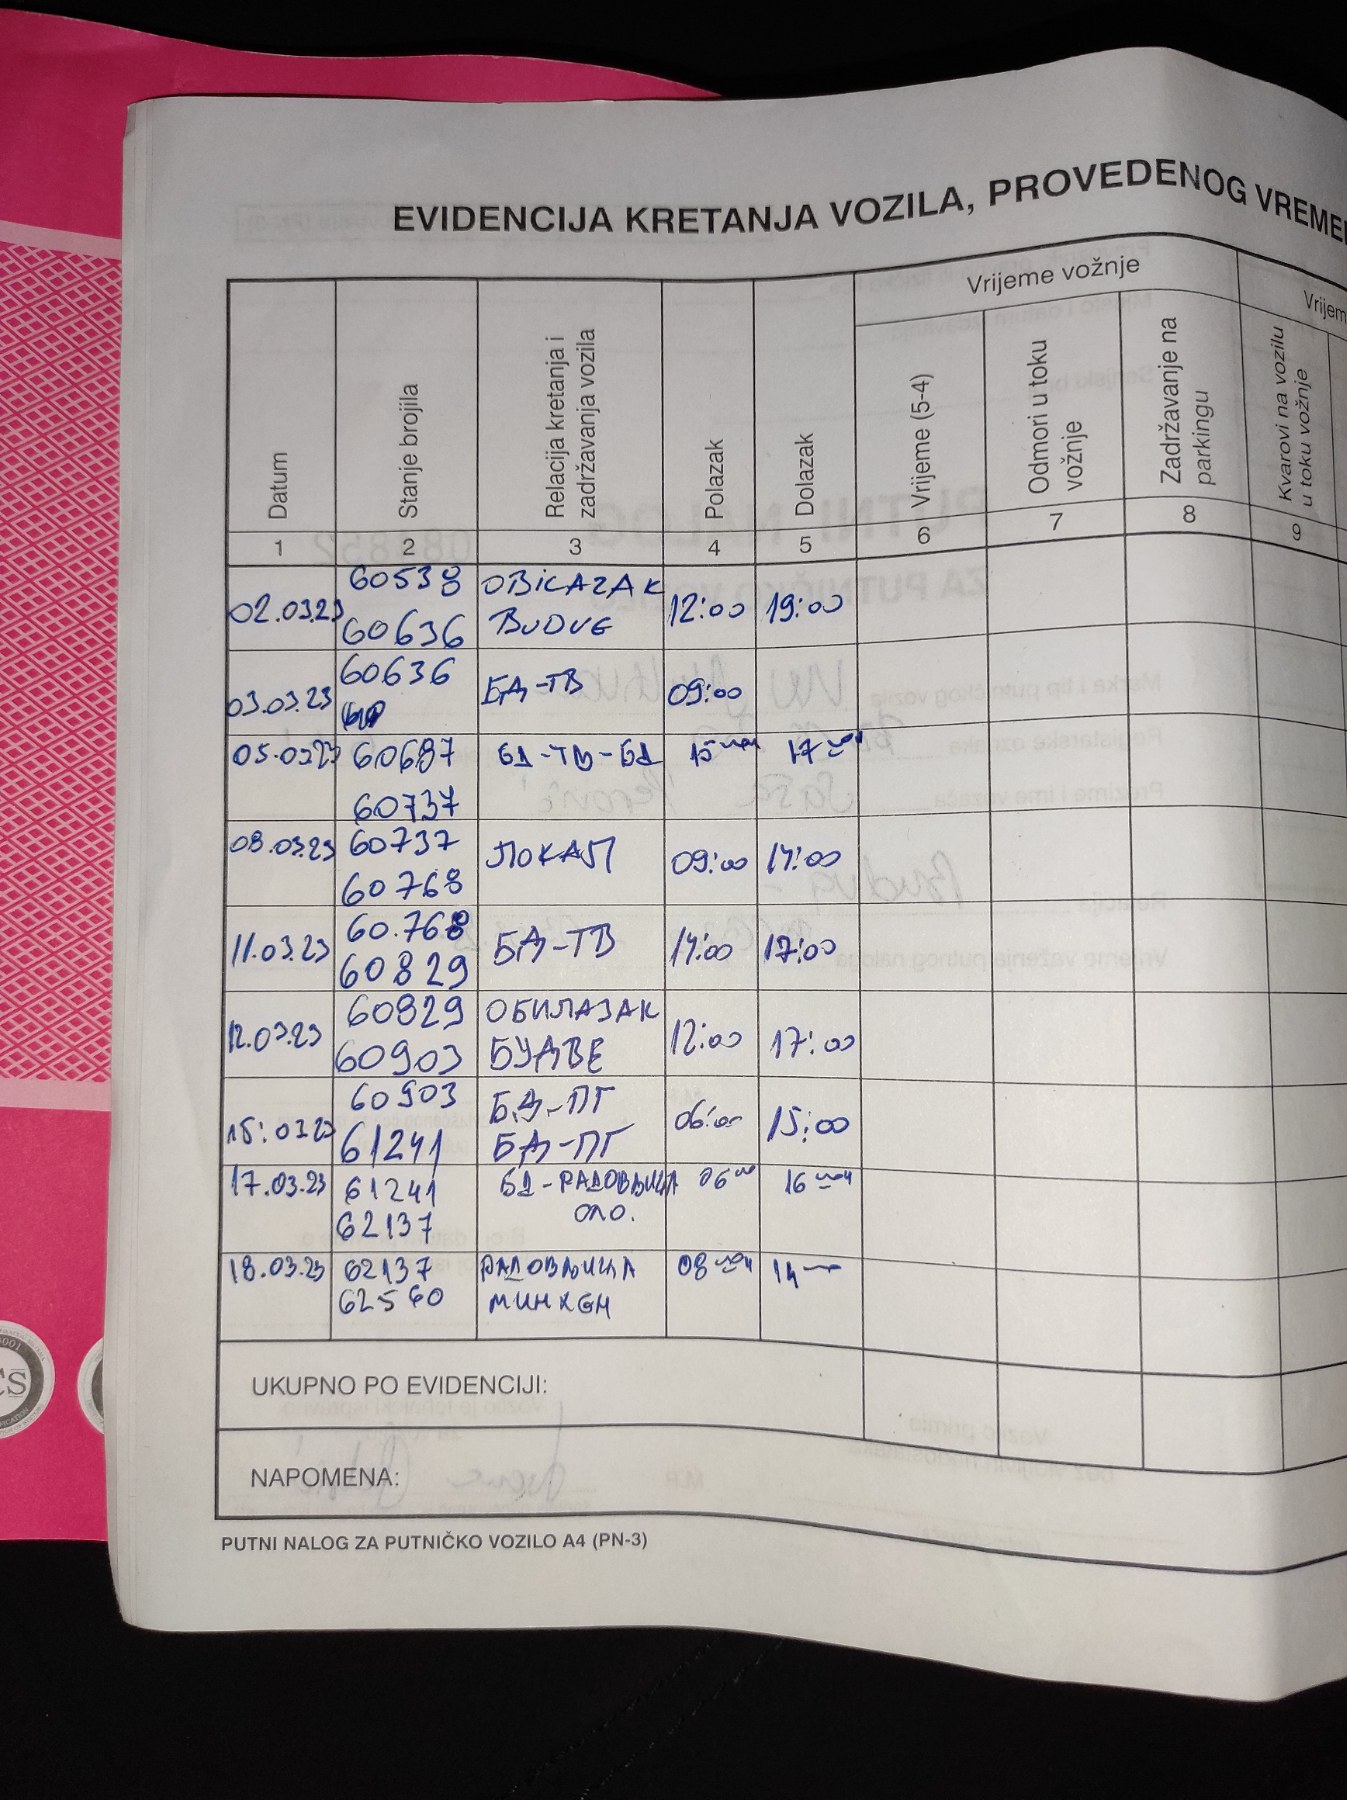 EVIDENCIJA KRETANJA VOZILA, PROVEDENOG VREME
Vrijeme vožnje
Vrijem
Datum
Stanje brojila
Relacija kretanja i
zadržavanja vozila
Polazak
Dolazak
Vrijeme (5-4)
Odmori u toku
vožnje
Zadržavanje na
parkingu
Kvarovi na vozilu
u toku vožnje
1 2 3 4 5 6 7 8 9
60538 OBILAZAK
02.03.23 12:00 19:00
60636 BUDVE
60636
03.03.23 БД-ТВ 09:00
05.03.23 60687 БД-ТВ-БД 15 17
60737
08.03.23 60737 ЛОКАЛ 09:00 14:00
60768
60.768
11.03.23 БД-ТВ 14:00 17:00
60829
60829 ОБИЛАЗАК
12.03.23 12:00 17:00
60903 БУДВЕ
60903 БД-ПГ
15.03.23 06:00 15:00
61241 БД-ПГ
17.03.23 61241 БД-РАДОВЉИЦА 06 16
62137
18.03.23 62137 РАДОВЉИЦА 08 14
62560 МИНХЕН
UKUPNO PO EVIDENCIJI:
NAPOMENA:
PUTNI NALOG ZA PUTNIČKO VOZILO A4 (PN-3)